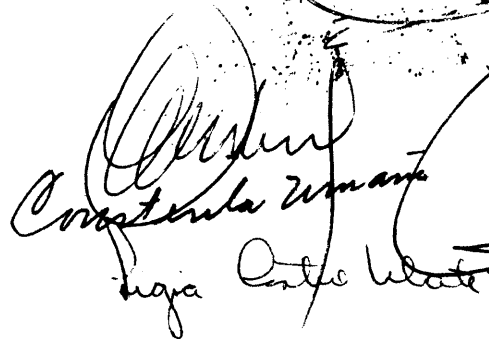 Constenla Umaña
Ligia Castro Ulate